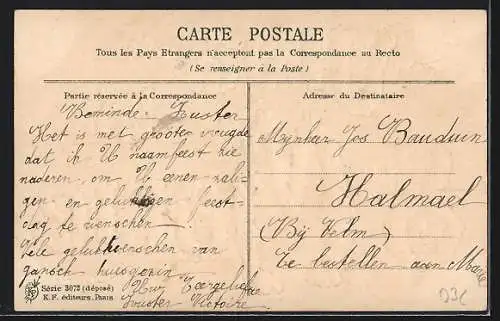 CARTE POSTALE
Tous les Pays Etrangers n'acceptent pas la Correspondance au Recto
(Se renseigner à la Poste)
Partie réservée à la Correspondance
Adresse du Destinataire
Beminde Zuster
Het is met grooter vreugde
dat ik U naamfeest zie
naderen, om U eenen zali-
gen en gelukkigen feest-
dag te wenschen.
Vele gelukwenschen van
gansch huisgezin
Uw
Zuster Victoire
Mynheer Jos Bauduin
Halmael
(Bij Velm)
te bestellen aan Marie
Série 3073 (déposé)
K.F. éditeurs, Paris